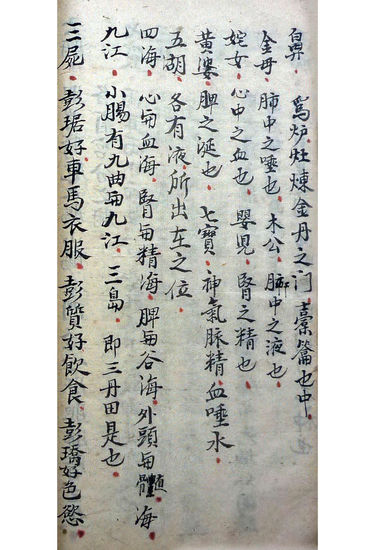 鼻 為炉灶煉金丹之门 籥也中
金丹 肺中之唾也 木公 中之液也
姹女 心中之血也 嬰児 腎之精也
黃婆 脾之涎也 七寶 神氣脈精血唾水
五胡 各有液所出在之位
四海 心為血海 腎為精海 脾為谷海 外頭為髓海
九江 小腸有九曲為九江 三島 即三丹田是也
三屍 彭琚好車馬衣服 彭質好飲食 彭矯好色慾